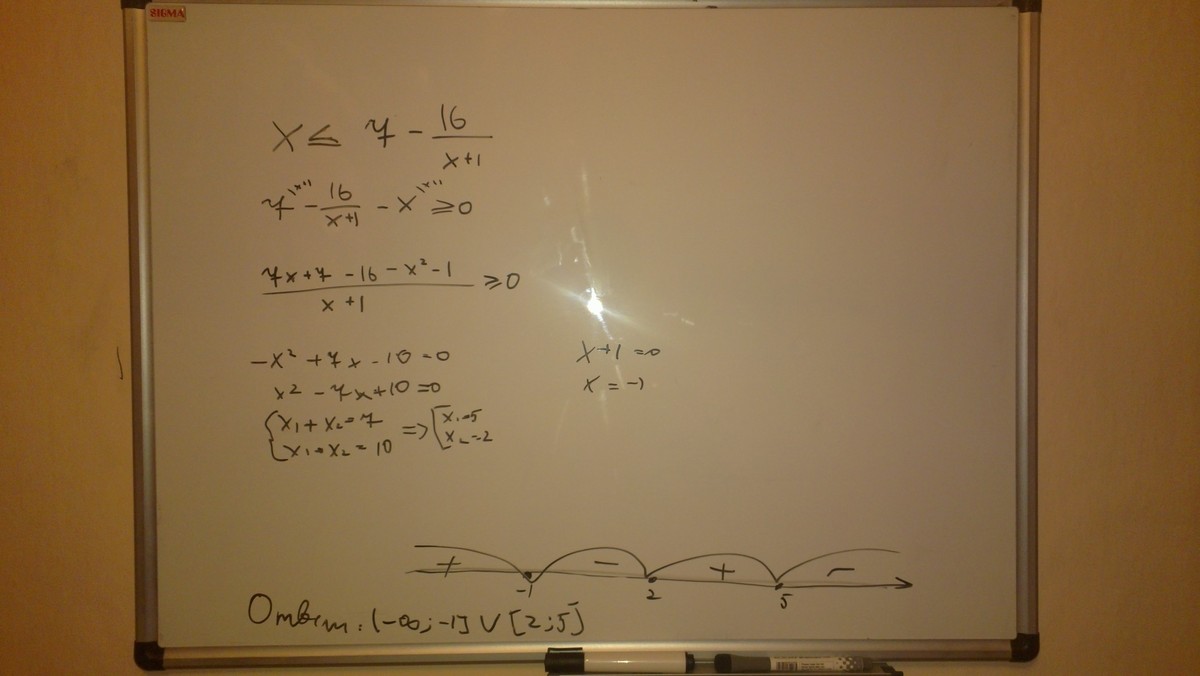 SIGMA
x ≤ 7 - 16/(x+1)
7^\(x+1) - 16/(x+1) - x^\(x+1) ≥ 0
(7x+7 - 16 - x² - 1)/(x+1) ≥ 0
-x² + 7x - 10 = 0
x² - 7x + 10 = 0
{ x₁ + x₂ = 7
x₁ • x₂ = 10 => [ x₁ = 5
x₂ = 2
x + 1 = 0
x = -1
+ - + -
-1 2 5
Ответ: (-∞; -1] ∪ [2; 5]